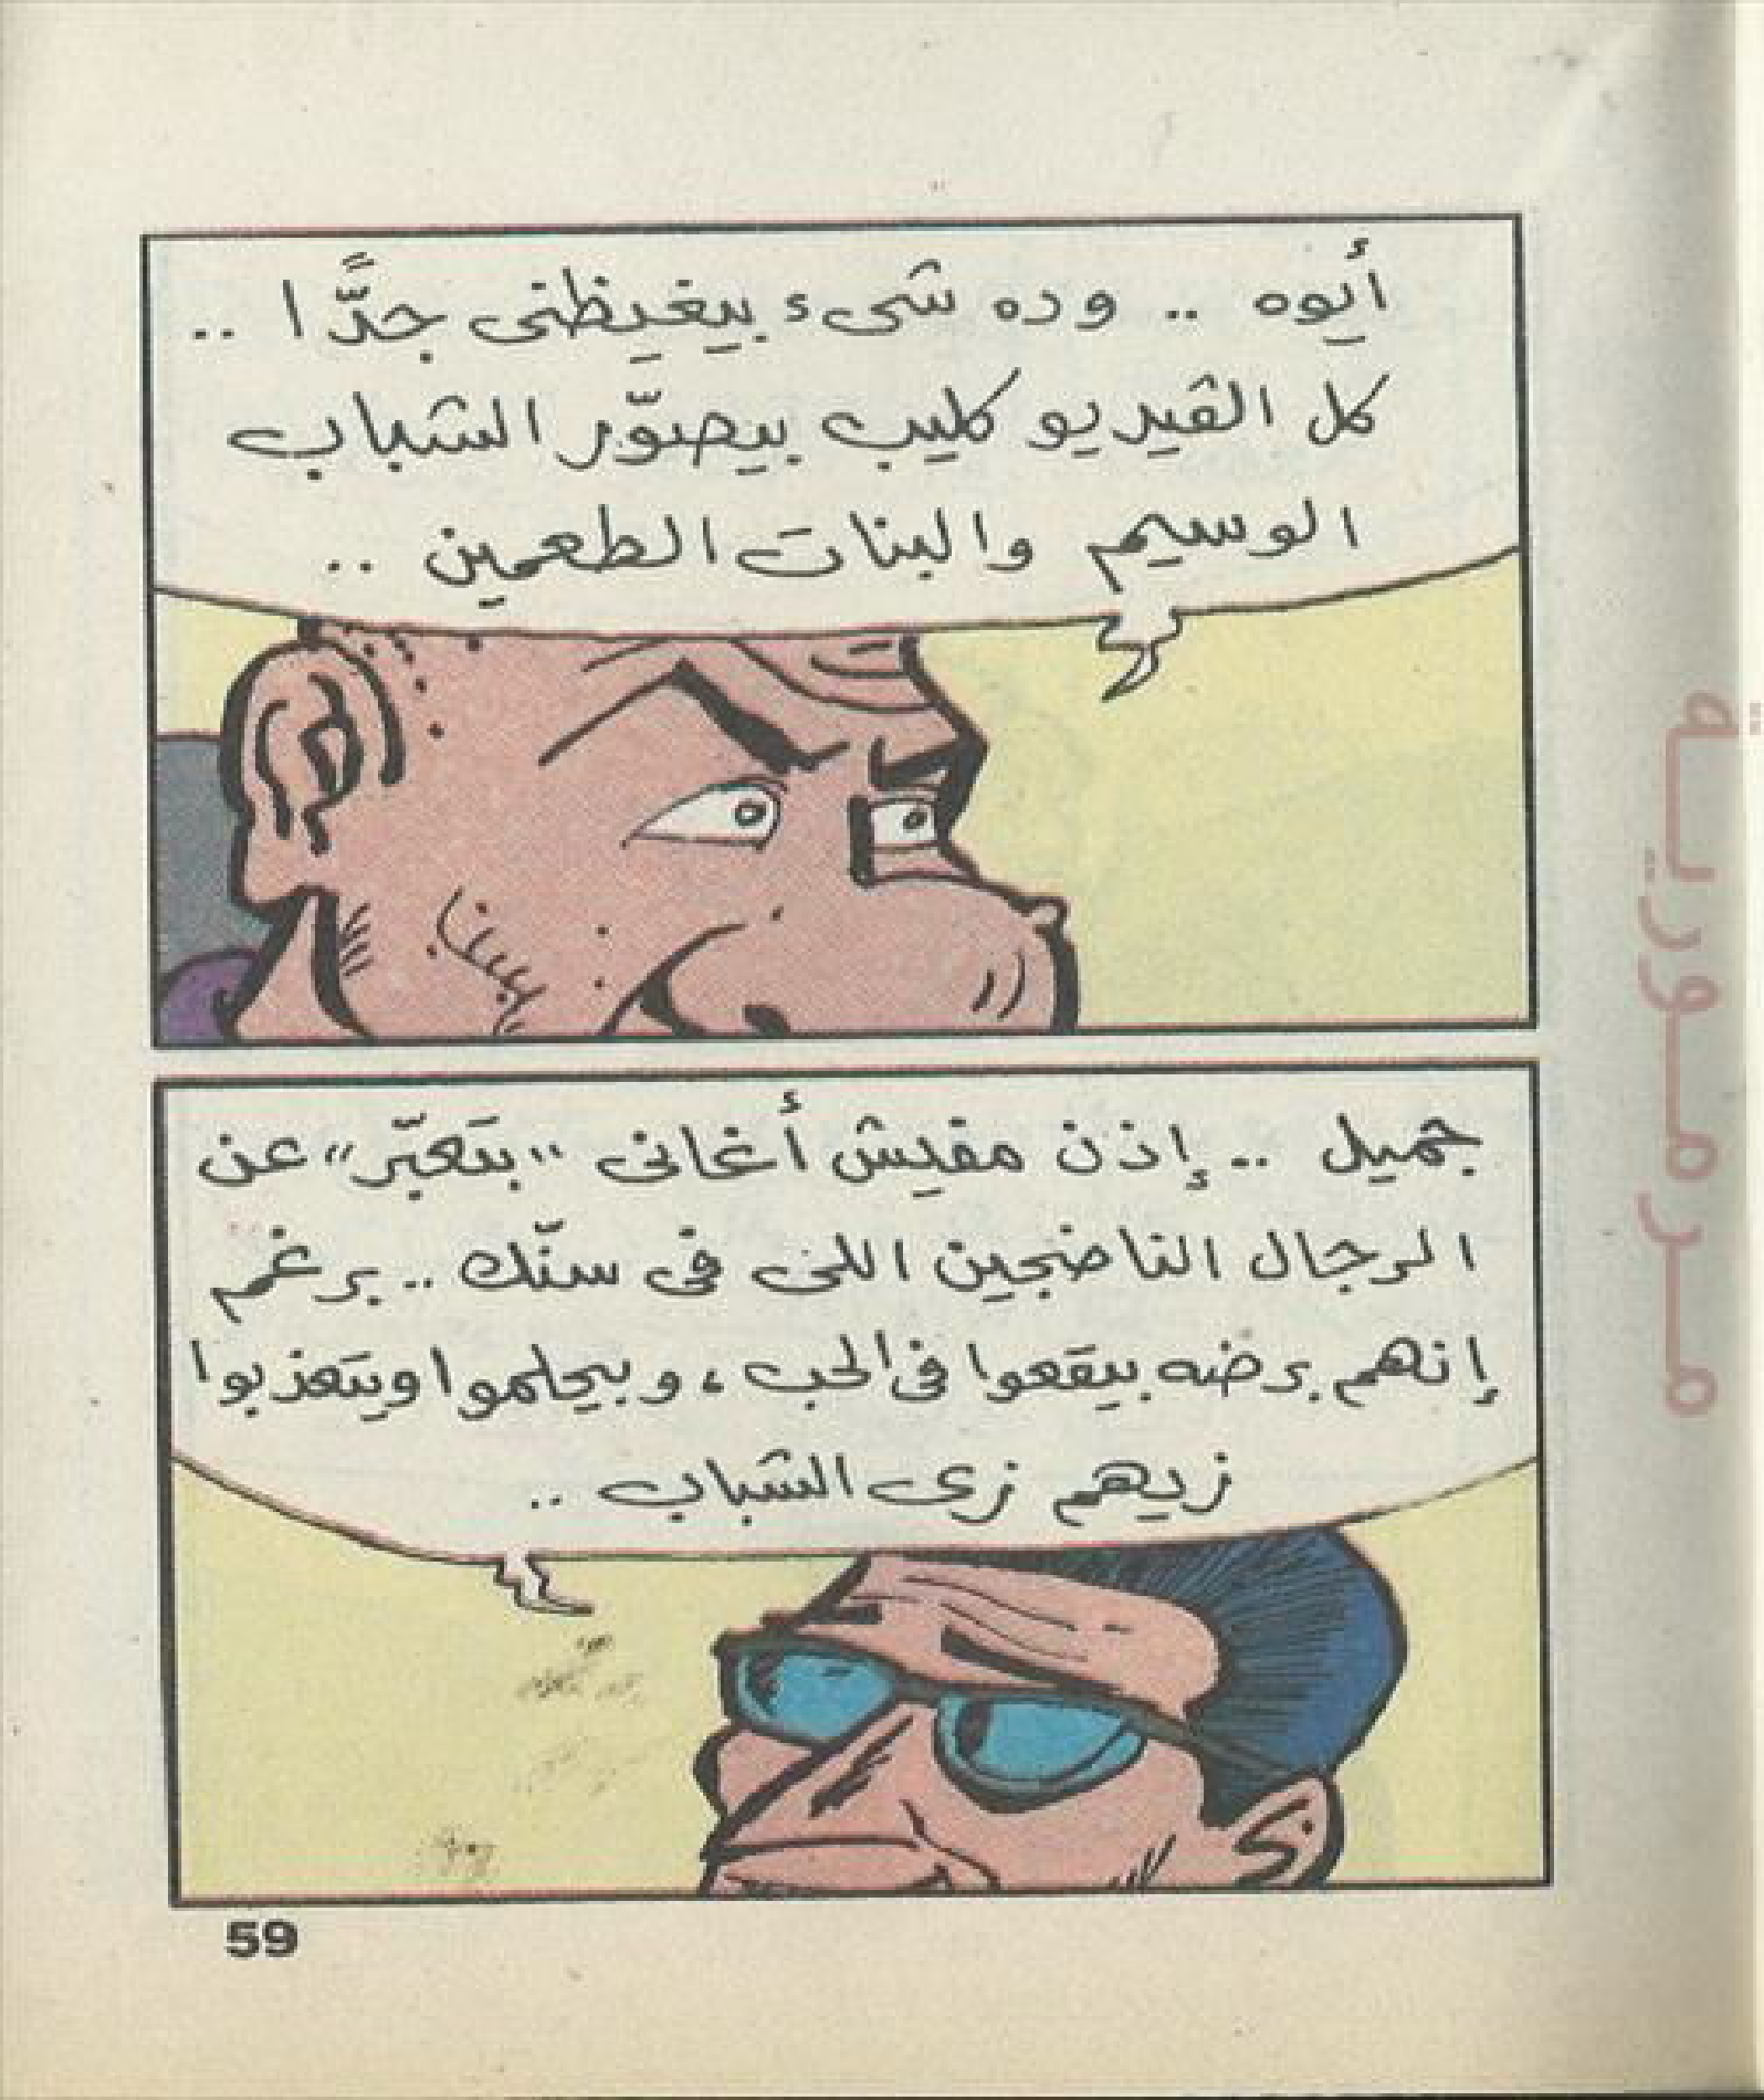 أيوه .. وده شىء بيغيظنى جدًّا ..
كل الڤيديو كليب بيصوّر الشباب
الوسيم والبنات الطعمين ..
جميل .. إذن مفيش أغانى "بتَعبّر" عن
الرجال الناضجين اللى فى سنّك .. برغم
إنهم برضه بيقَعوا فى الحب ، وبيحلموا ويتَعذبوا
زيهم زى الشباب ..
59
مرمورية